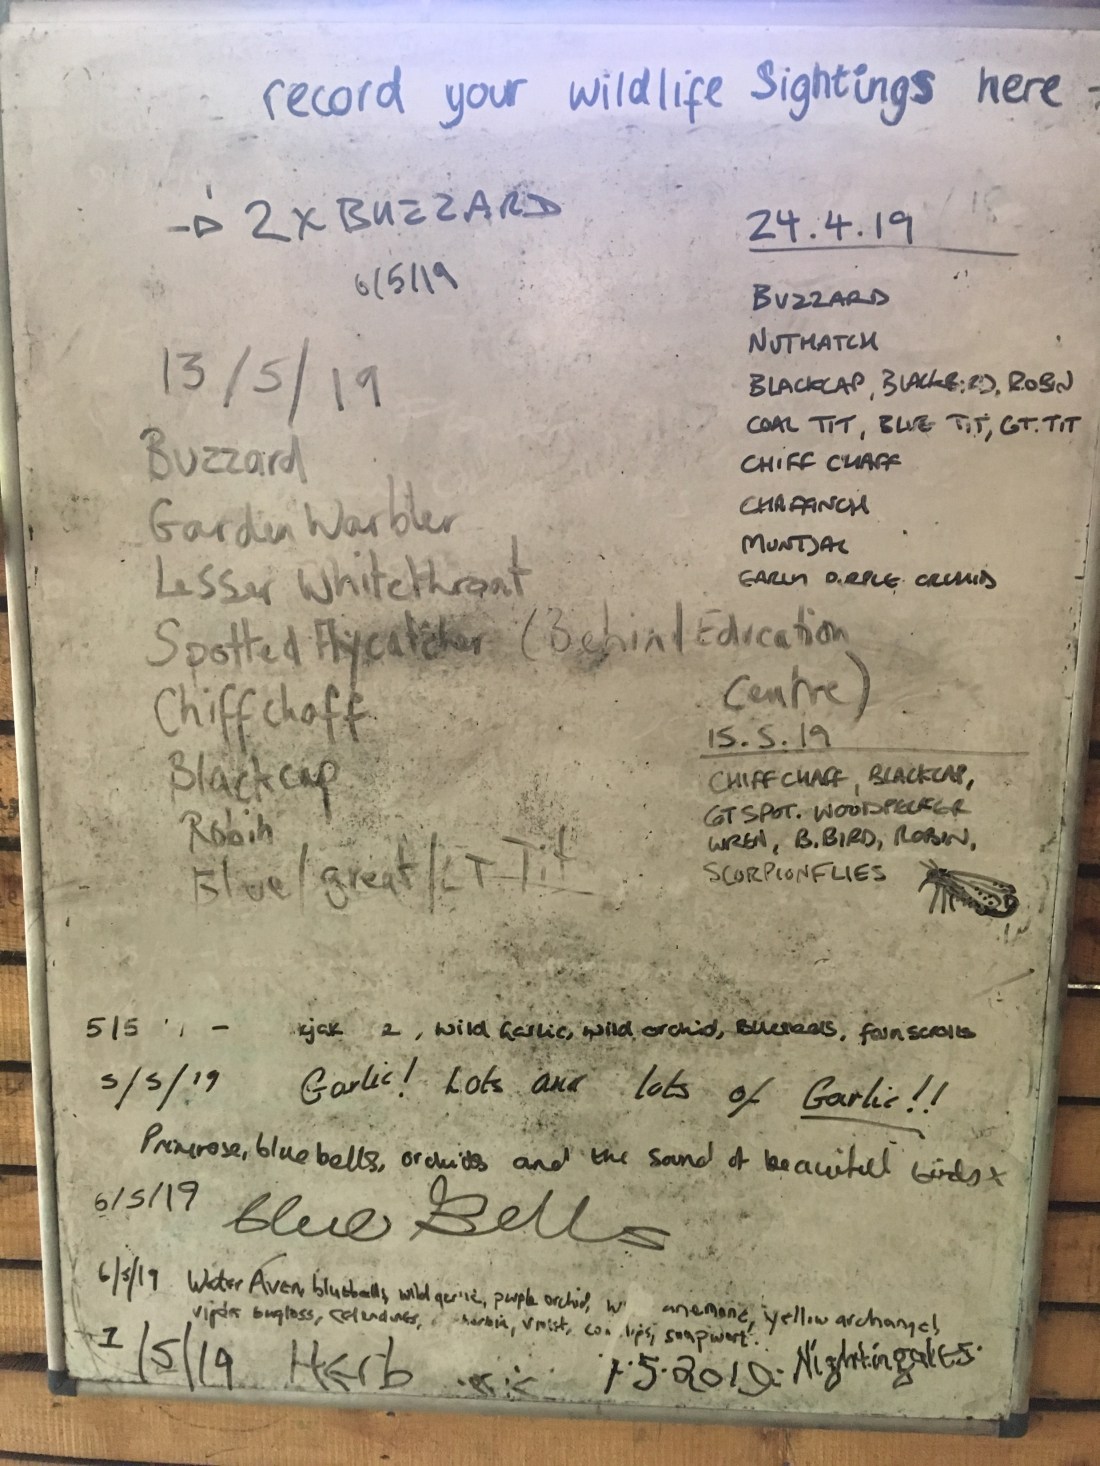 record your wildlife Sightings here
2 x BUZZARD
6/5/19
24.4.19
BUZZARD
NUTHATCH
BLACKCAP, BLACKBIRD, ROBIN
COAL TIT, BLUE TIT, GT. TIT
CHIFF CHAFF
CHAFFINCH
MUNTJAC
EARLY PURPLE ORCHID
13/5/19
Buzzard
Garden Warbler
Lesser Whitethroat
Spotted Flycatcher (Behind Education
Centre)
Chiffchaff
Blackcap
Robin
Blue/great/LT Tit
15.5.19
CHIFFCHAFF, BLACKCAP,
GT SPOT. WOODPECKER
WREN, B.BIRD, ROBIN,
SCORPIONFLIES
5/5 - 2, wild Garlic, wild orchid, Bluebells, fern scrolls
5/5/19 Garlic! Lots and lots of Garlic!!
Primrose, bluebells, orchids and the sound of beautifull birds x
6/5/19 Blue Bells
6/5/19 Water Aven, bluebells, wild garlic, purple orchid, anemone, yellow archangel,
viper bugloss, violet, cowlips, soapwort.
1/5/19 Herb 1.5.2019. Nightingales